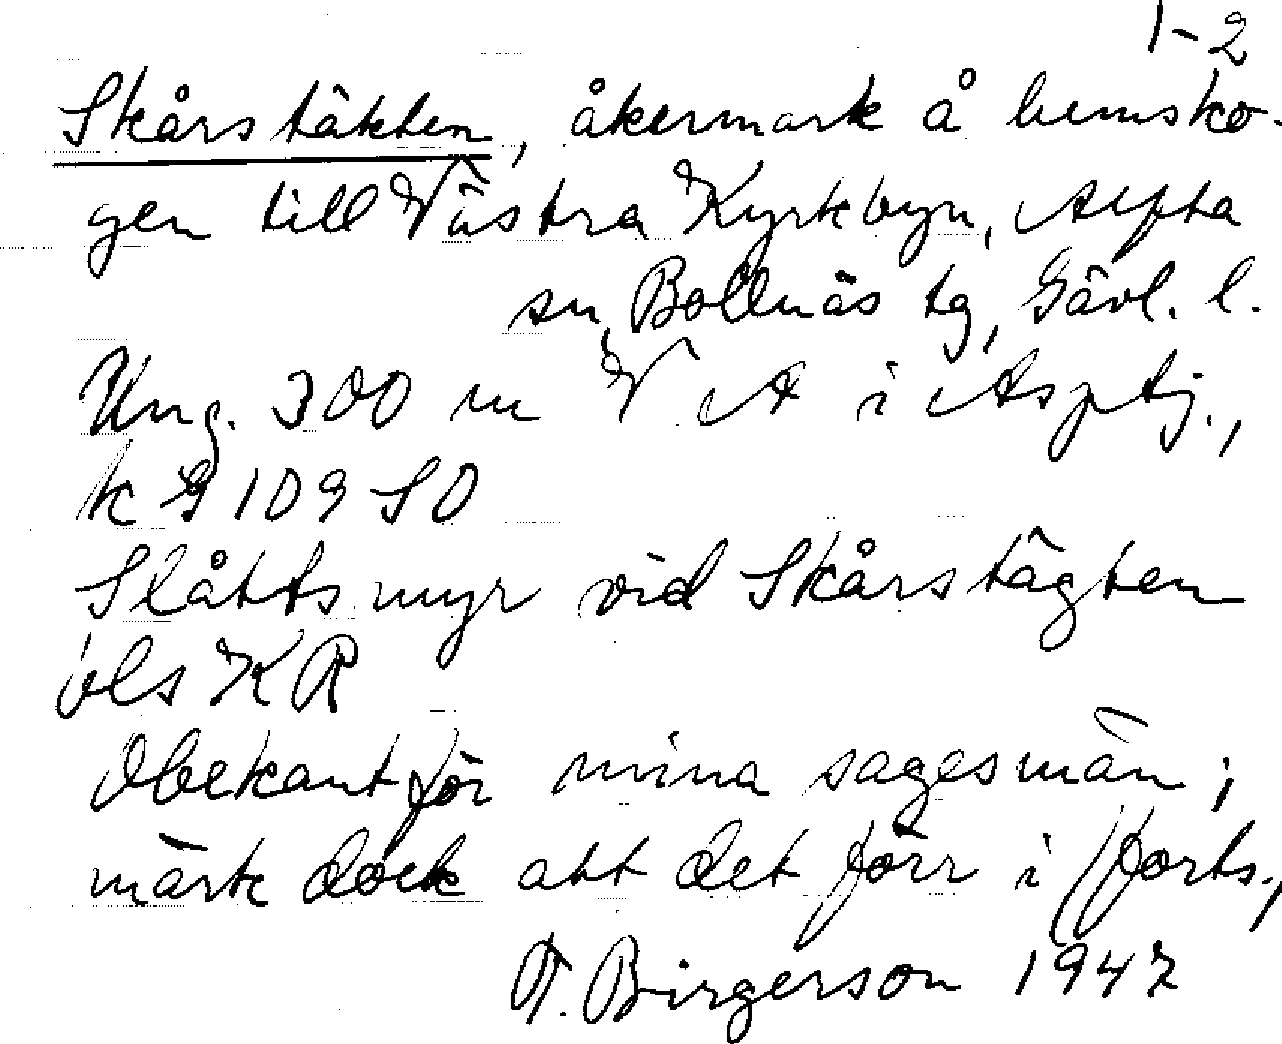 1-2
Skårstäkten, åkermark å hemsko-
gen till Västra Kyrkbyn, Alfta
sn, Bollnäs tg, Gävl. l.
Ung. 300 m V A i
k 9 109 SO
Slåttsmyr vid Skårstägten
ols KR
Obekant för mina sagesmän;
märk dock att det förr i (forts.,
T. Birgerson 1947